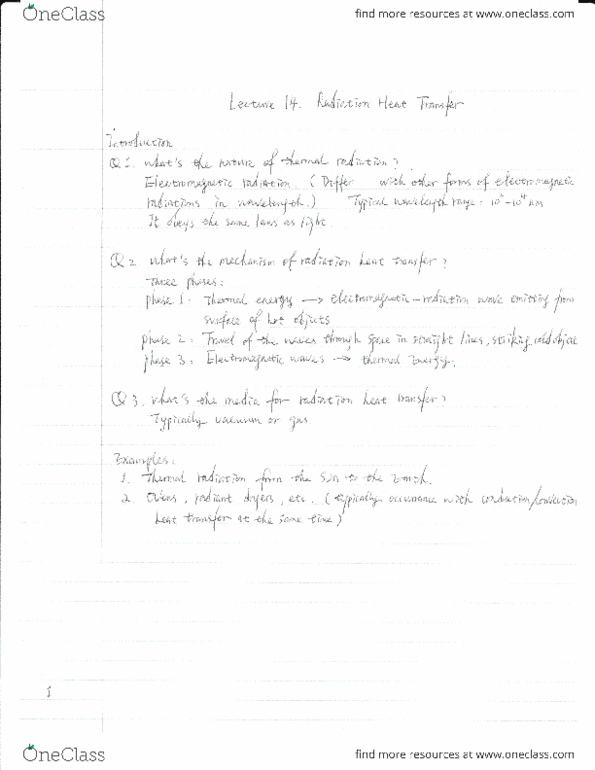 OneClass
find more resources at www.oneclass.com
Lecture 14. Radiation Heat Transfer
Introduction
Q 1. what's the nature of thermal radiation?
Electromagnetic radiation. (Differ with other forms of electromagnetic
radiations in wavelength.) Typical wavelength range
It obeys the same laws as light.
Q 2. what's the mechanism of radiation heat transfer?
Three phases:
phase 1. Thermal energy → electromagnetic-radiation wave emitting from
surface of hot objects
phase 2. Travel of the waves through space in straight lines, striking cold object
phase 3. Electromagnetic waves → thermal Energy.
Q 3. what's the media for radiation heat transfer?
Typically vacuum or gas
Examples:
1. Thermal radiation from the Sun to the Earth.
2. Ovens, radiant dryers, etc. (typically occurance with conduction/convection
heat transfer at the same time)
1
OneClass
find more resources at www.oneclass.com